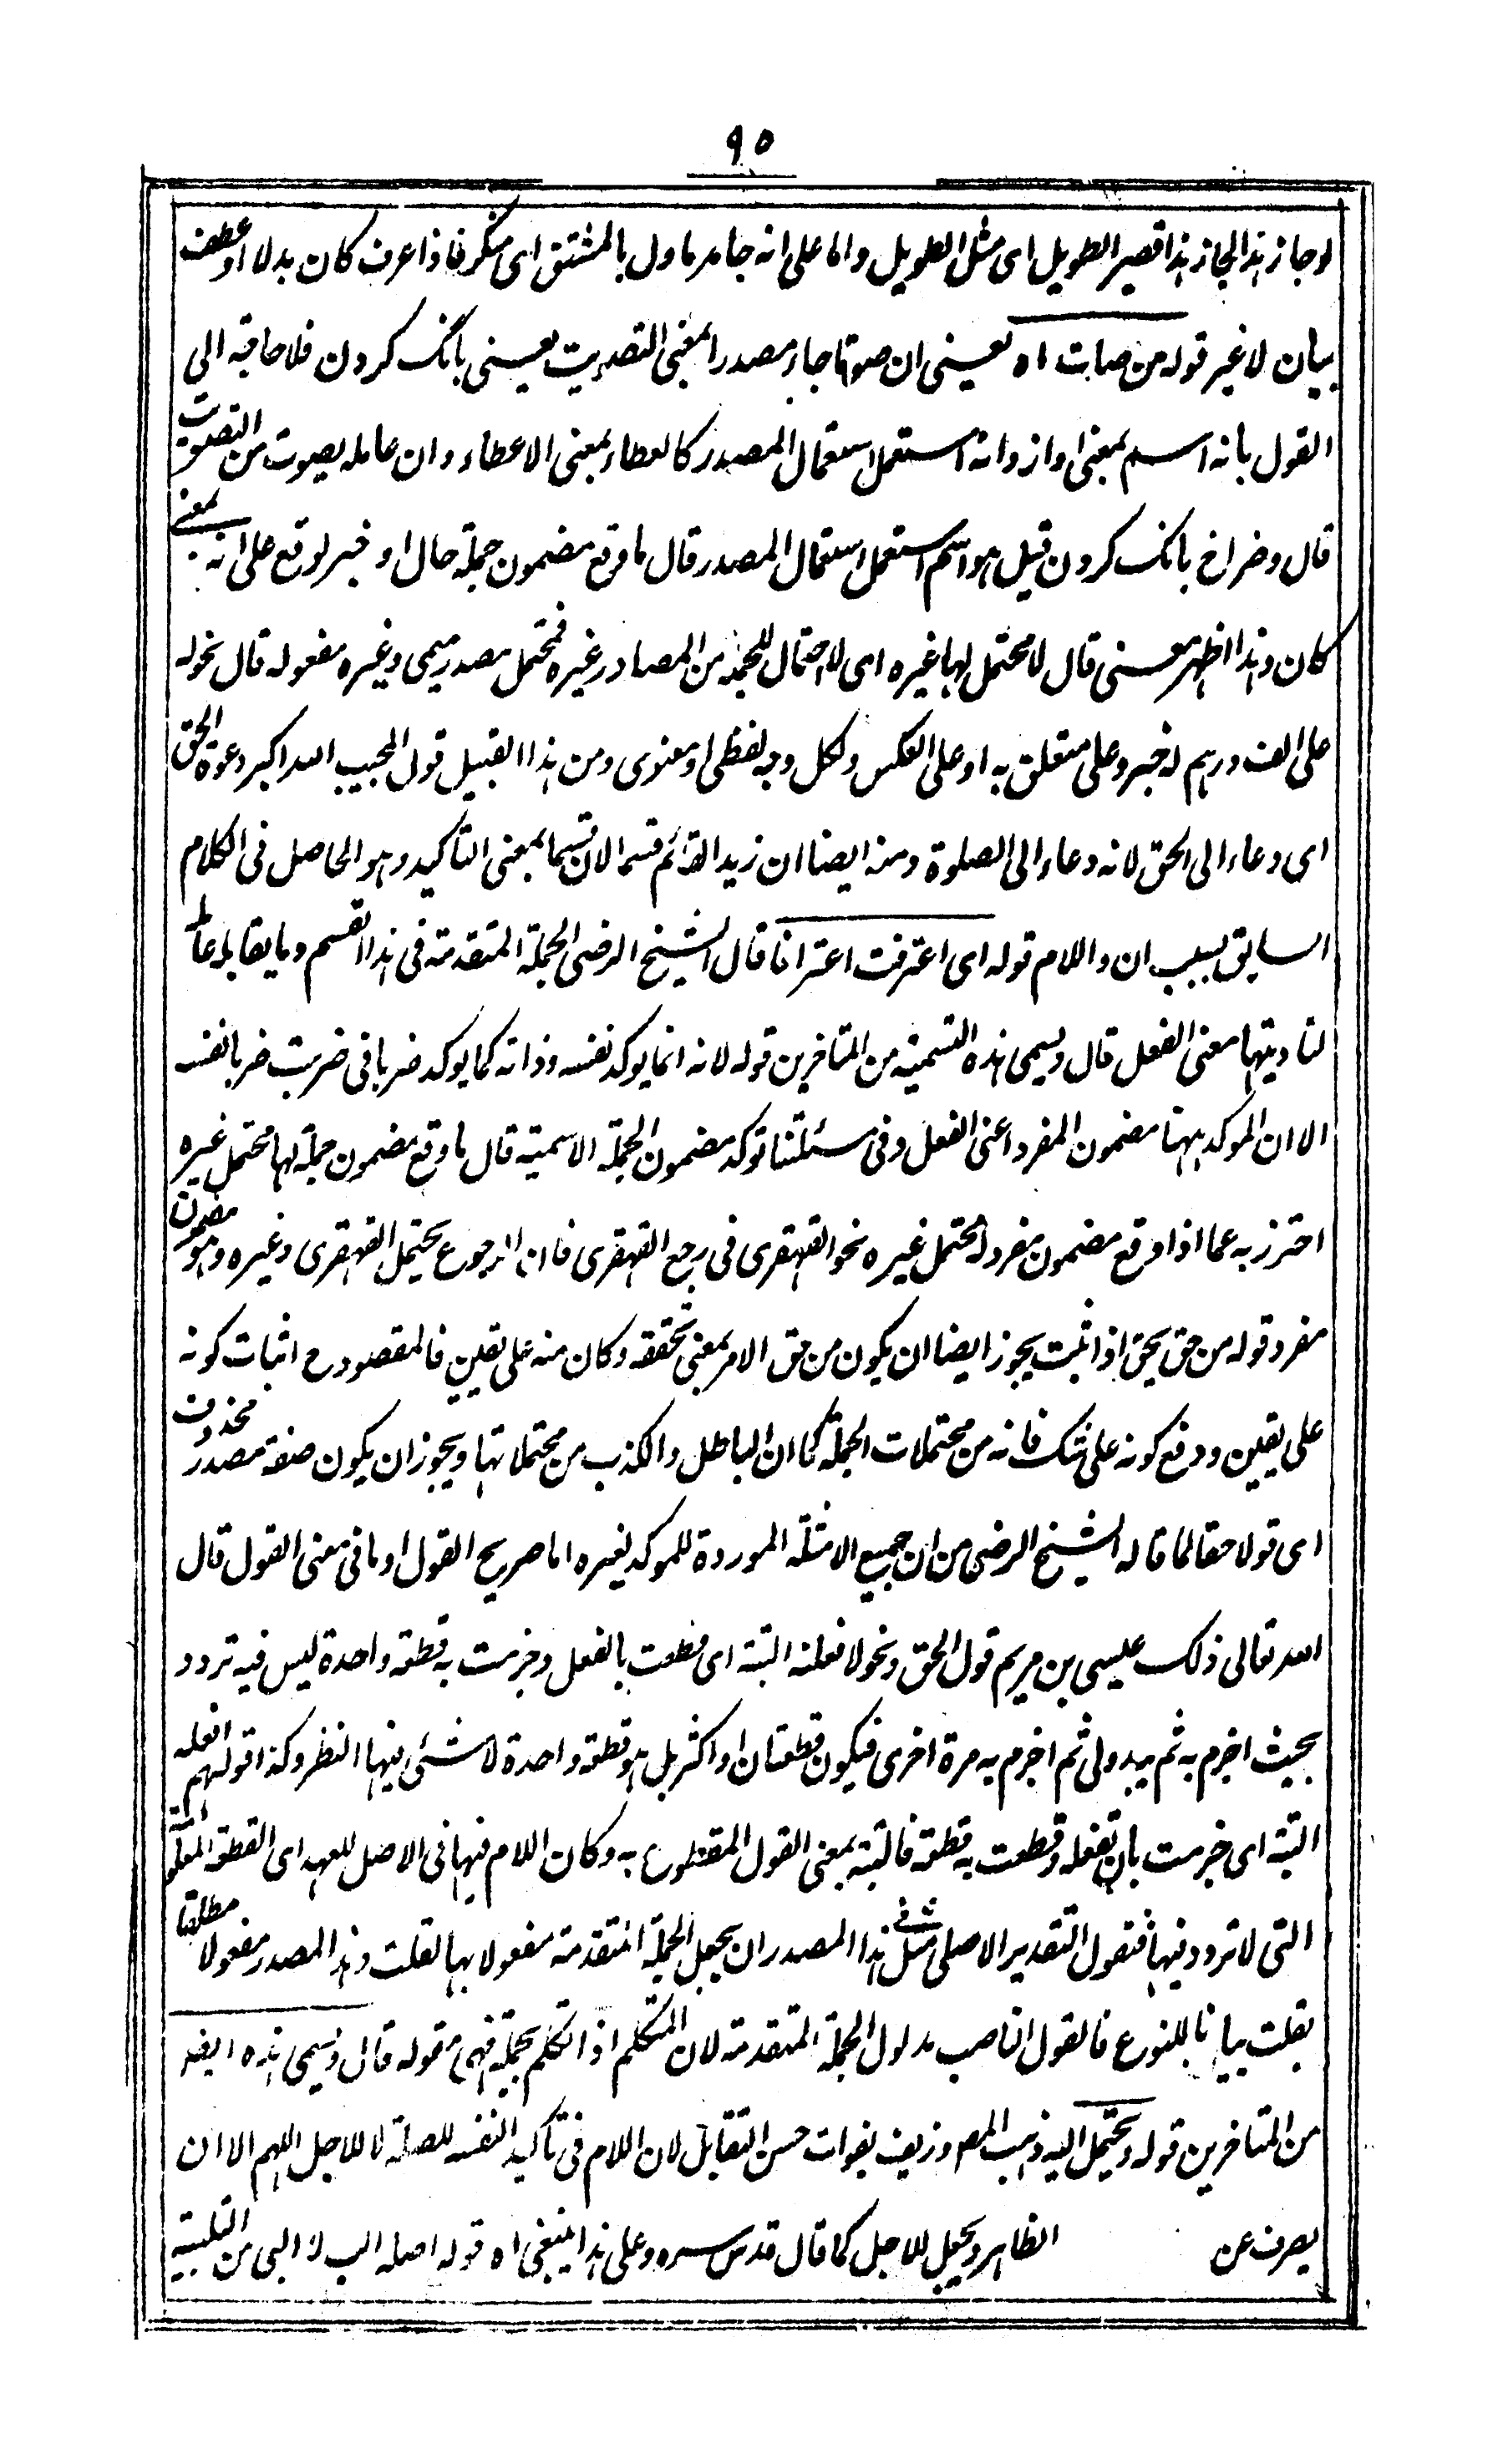 ٩٥
لو جاز هذا لجاز هذا قصير الطويل اى مثل الطويل واما على انه جامد ماول بالمشتق اى منكر فاذا عرف كان بدلا او عطف
بيان لا غير قوله من صات اه يعنى ان صوتا جاء مصدرا بمعنى التصويت يعنى بانگ كردن فلا حاجة الى
القول بانه اسم بمعنى اواز وانه استعمل استعمال المصدر كالعطاء بمعنى الاعطاء وان عامله يصوت من التصويت
قال وصراخ بانگ كردن قيل هو اسم استعمل استعمال المصدر قال ما وقع مضمون جملة حال او خبر لوقع على انه بمعنى
كان وهذا اظهر معنى قال لا محتمل لها غيره اى لا احتمال للجملة من المصادر غيره فمحتمل مصدر ميمى وغيره مفعوله قال نحو له
على الف درهم له خبر وعلى متعلق به او على العكس ولكل وجه لفظى او معنوى ومن هذا القبيل قول المجيب الله اكبر دعوة الحق
اى دعاء الى الحق لانه دعاء الى الصلوة ومنه ايضا ان زيدا لقائم قسما لان قسما بمعنى التأكيد وهو الحاصل فى الكلام
السابق بسبب ان واللام قوله اى اعترفت اعترافا قال الشيخ الرضى الجملة المتقدمة فى هذا القسم وما يقابله عاملة
لتاديتها معنى الفعل قال ويسمى هذه التسمية من المتاخرين قوله لانه انما يوكد نفسه وذاته كما يوكد ضربا فى ضربت ضربا نفسه
الا ان الموكد ههنا مضمون المفرد اعنى الفعل وفى مسئلتنا توكد مضمون الجملة الاسمية قال ما وقع مضمون جملة لها محتمل غيره
احترز به عما اذا وقع مضمون مفرد له محتمل غيره نحو القهقرى فى رجع القهقرى فان الرجوع يحتمل القهقرى وغيره وهو مضمون
مفرد قوله من حق يحق اذا ثبت يجوز ايضا ان يكون من حق الامر بمعنى تحققه وكان منه على يقين فالمقصود ح اثبات كونه
على يقين ودفع كونه على شك فانه من محتملات الجملة كما ان الباطل والكذب من محتملاتها ويجوز ان يكون صفة مصدر محذوف
اى قولا حقا لما قاله الشيخ الرضى من ان جميع الامثلة الموردة للموكد لغيره اما صريح القول او ما فى معنى القول قال
الله تعالى ذلك عيسى بن مريم قول الحق ونحو لا فعلته البتة اى قطعت بالفعل وجزمت به قطعة واحدة ليس فيه تردد
بحيث اجزم به ثم يبدو لى ثم اجزم به مرة اخرى فيكون قطعتان او اكثر بل هو قطعة واحدة لا شئى فيها النظر وكذا قولهم افعله
البتة اى جزمت بان تفعله وقطعت به قطعة فالبتة بمعنى القول المقطوع به وكان اللام فيها فى الاصل للعهد اى القطعة المعلومة
التى لا تردد فيها فنقول التقدير الاصلى فى مثل هذا المصدر ان يجعل الجملة المتقدمة مفعولا بها لقلت وهذا المصدر مفعولا مطلقا
بقلت بيانا للنوع فالقول الناصب مدلول الجملة المتقدمة لان المتكلم اذا تكلم بجملة فهى مقوله قال ويسمى هذه ايضا
من المتاخرين قوله ويحتمل اليه ذهب المص وزيف بفوات حسن التقابل لان اللام فى تأكيد النفسه للصلة لا للاجل اللهم الا ان
يصرف عن الظاهر ويجعل للاجل كما قال قدس سره وعلى هذا ينبغى اه قوله اصله الب لك البى من التلبية